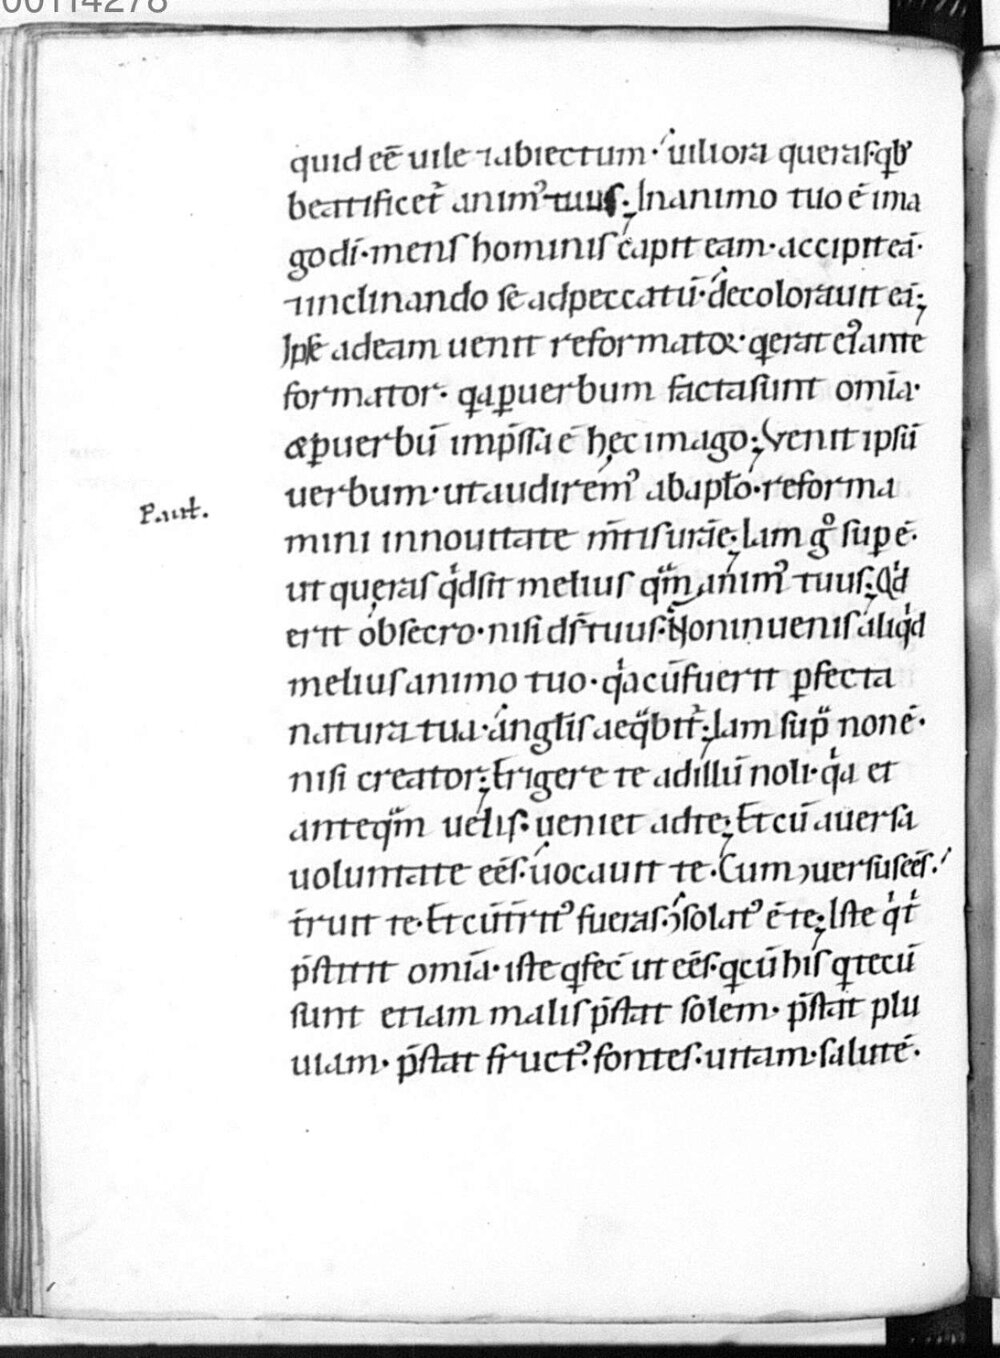 00114278
quid eē uile ⁊abiectum· uiliora queras· qb᷒
beatificet᷑ anim᷒ tuus; In animo tuo ē ima
go dī· mens hominis capit eam· accipit eā·
⁊inclinando se ad peccatū· decolorauit eā;
Ipse ad eam uenit reformator· q̄ erat ei᷒ ante
formator· q̄a ꝑ uerbum facta sunt om̄ia·
& ꝑ uerbū imp̄ssa ē hęc imago; Venit ipsū
uerbum· ut audirem᷒ ab apłō· reforma
P. aut.
mini in nouitate m̄tis ur̄ę; Iam gͦ sup ē·
ut quęras qͥd sit melius qͣm anim᷒ tuus; Qͥd
erit obsecro· nisi ds̄ tuus· Non inuenis aliqͥd
melius animo tuo· qͥa cū fuerit ꝑfecta
natura tua· angłis aeqͣbit᷑; Iam supͣ non ē·
nisi creator; Erigere te ad illū noli· qͥa et
anteqͣm uelis· ueniet ad te; Et cū auersa
uoluntate eēs· uocauit te· Cum ꝯuersus eēs·
t̄ruit te· Et cū t̄rit᷒ fueras· ꝯsolat᷒ ē te; Iste qͥ t
p̄stitit om̄ia· iste q̄ fec̄ ut eēs· q̄ cū his q̄ tecū
sunt etiam malis p̄stat solem· p̄stat plu
uiam· p̄stat fruct᷒· fontes· uitam· salutē·